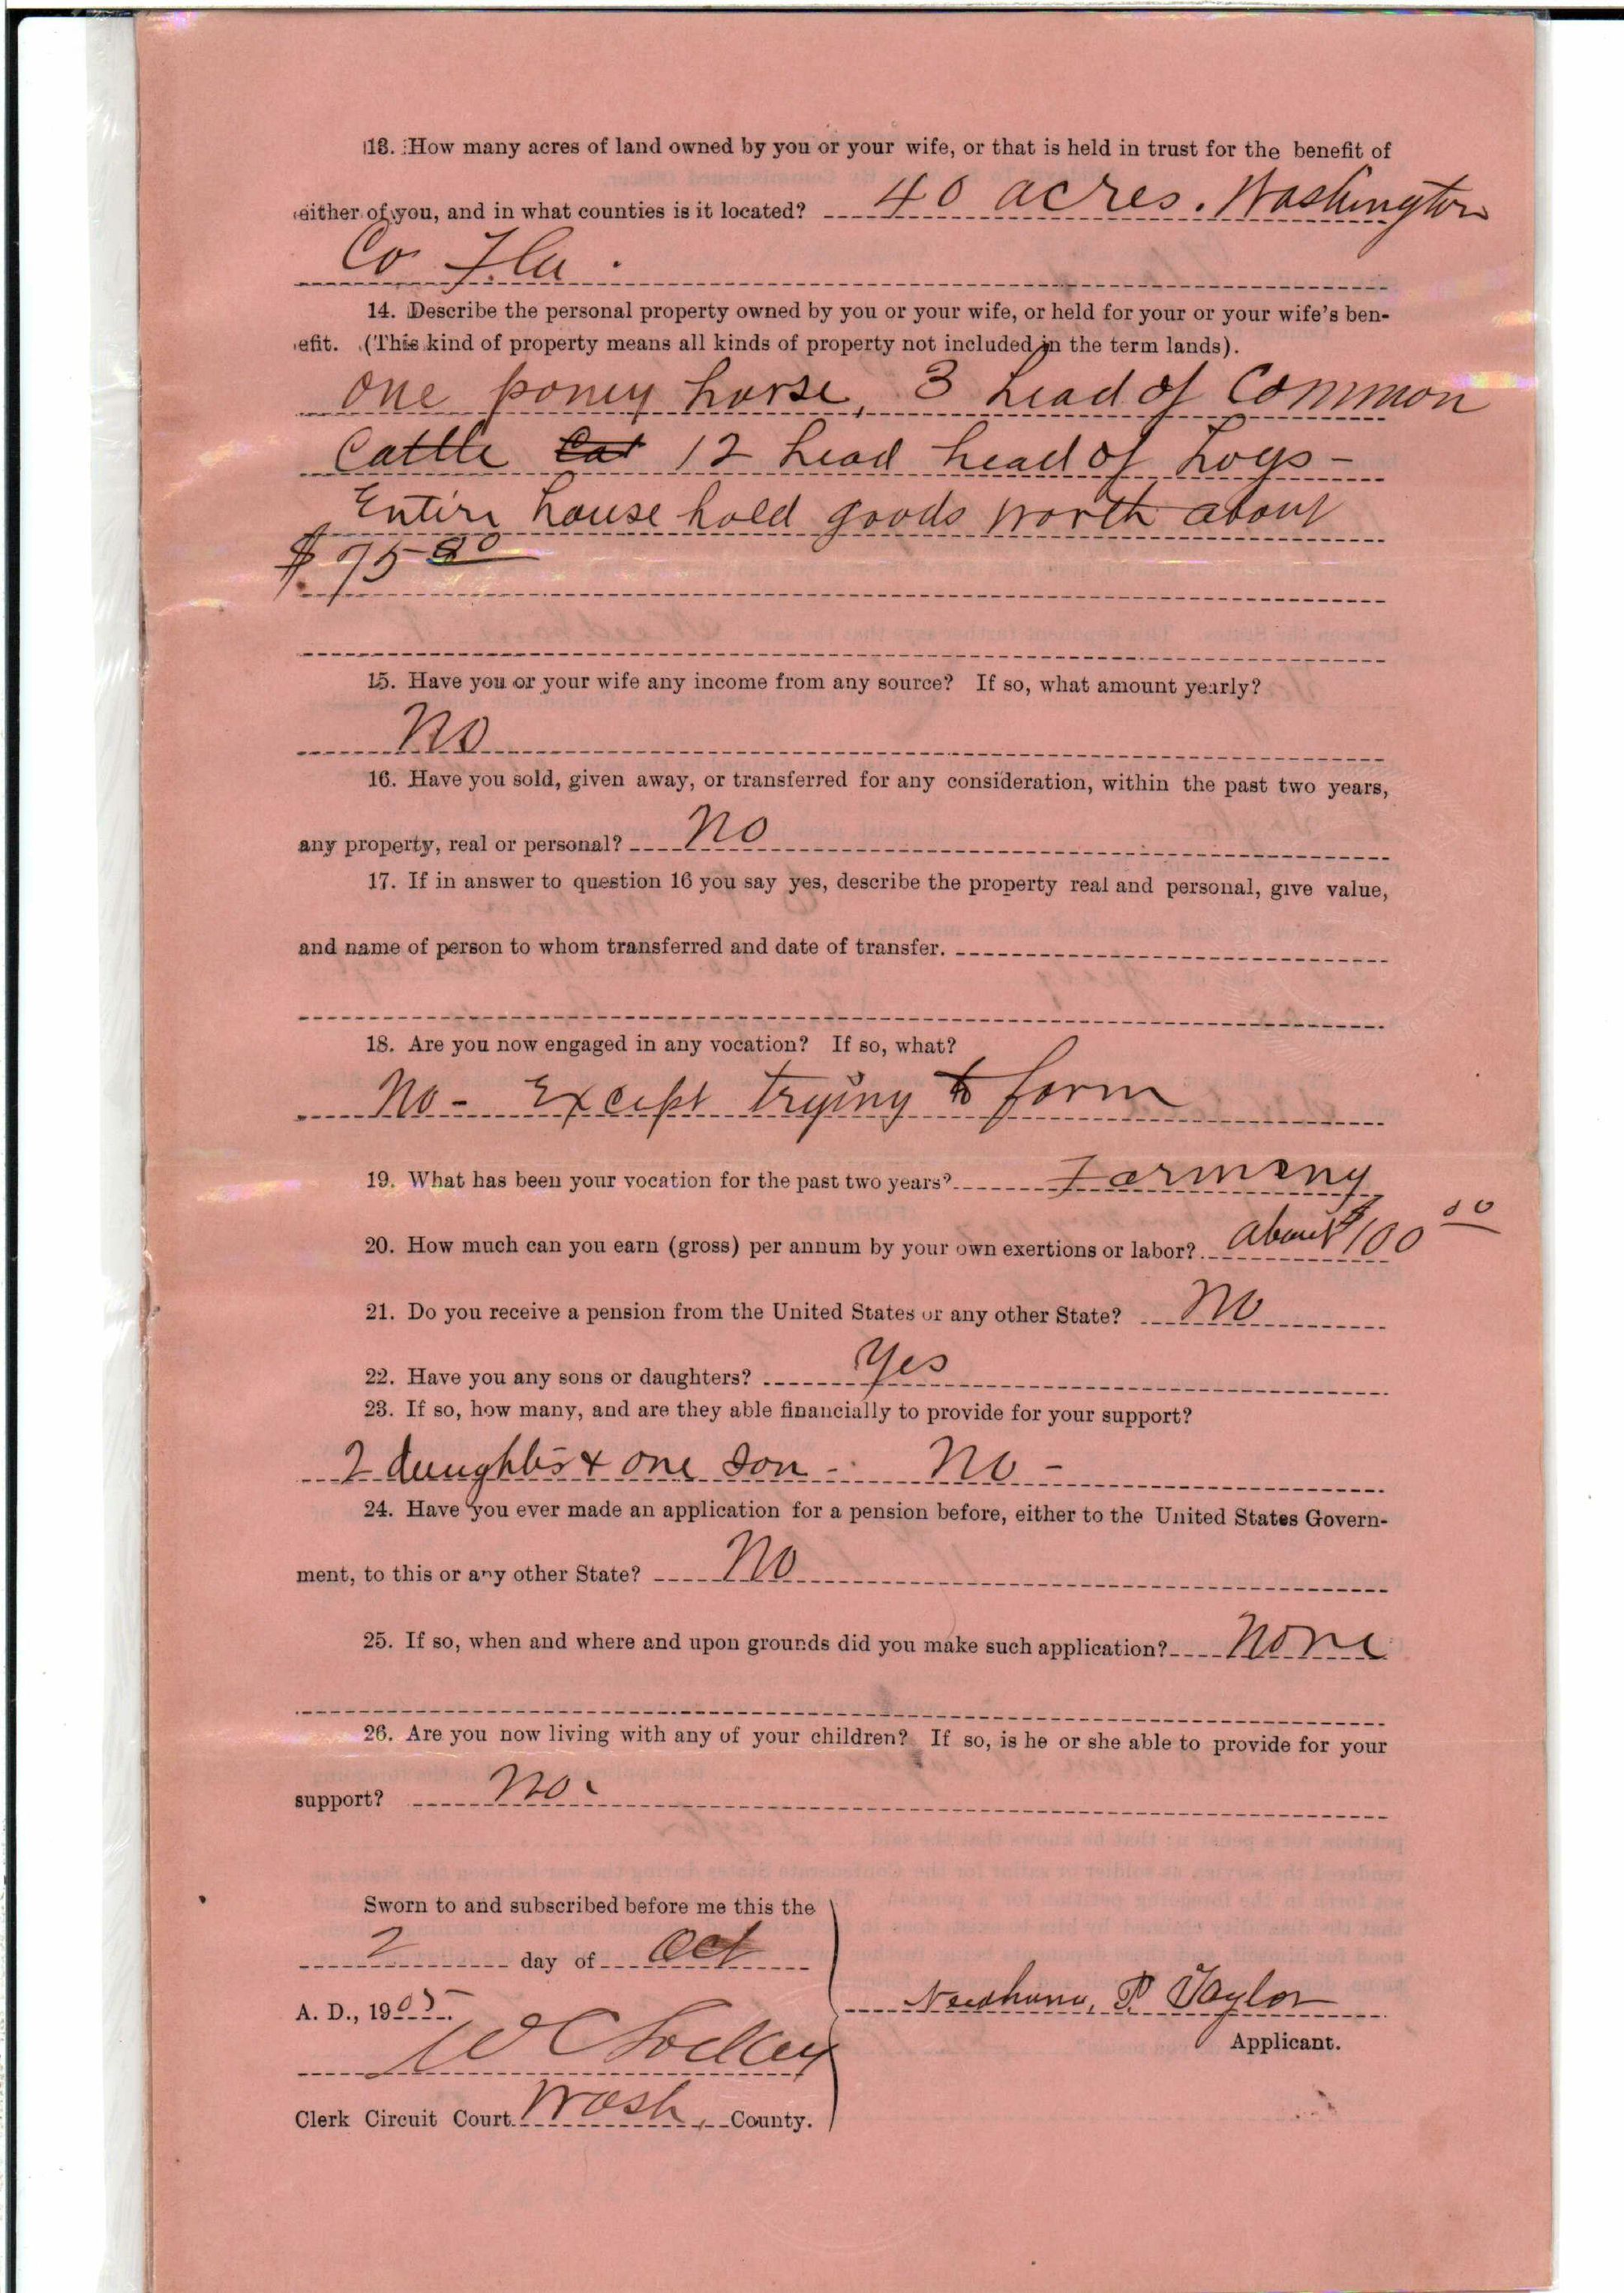 13. How many acres of land owned by you or your wife, or that is held in trust for the benefit of
either of you, and in what counties is it located? 40 acres. Washington
Co Fla.
14. Describe the personal property owned by you or your wife, or held for your or your wife's ben-
efit. (This kind of property means all kinds of property not included in the term lands).
one poney horse, 3 head of Common
Cattle Cat 12 head head of hogs -
Entire house hold goods worth about
$75 00
15. Have you or your wife any income from any source? If so, what amount yearly?
No
16. Have you sold, given away, or transferred for any consideration, within the past two years,
any property, real or personal? No
17. If in answer to question 16 you say yes, describe the property real and personal, give value,
and name of person to whom transferred and date of transfer.
18. Are you now engaged in any vocation? If so, what?
No - Except trying to farm
19. What has been your vocation for the past two years? Farming
20. How much can you earn (gross) per annum by your own exertions or labor? about $100 00
21. Do you receive a pension from the United States or any other State? No
22. Have you any sons or daughters? Yes
23. If so, how many, and are they able financially to provide for your support?
2 daughters & one son - No -
24. Have you ever made an application for a pension before, either to the United States Govern-
ment, to this or any other State? No
25. If so, when and where and upon grounds did you make such application? None
26. Are you now living with any of your children? If so, is he or she able to provide for your
support? No.
Sworn to and subscribed before me this the
2 day of Oct
A. D., 1905.
W C Lockey
Clerk Circuit Court Wash. County.
Needham, P. Taylor
Applicant.